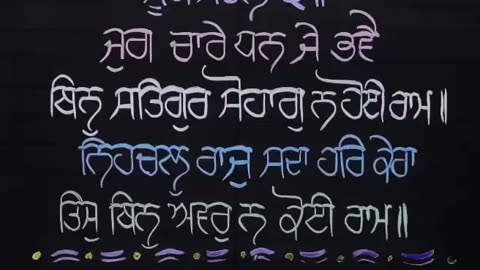 ਜੁਗ ਚਾਰੇ ਧਨ ਜੇ ਭਵੈ
ਬਿਨੁ ਸਤਿਗੁਰ ਸੋਹਾਗੁ ਨ ਹੋਈ ਰਾਮ ॥
ਨਿਹਚਲੁ ਰਾਜੁ ਸਦਾ ਹਰਿ ਕੇਰਾ
ਤਿਸੁ ਬਿਨੁ ਅਵਰੁ ਨ ਕੋਈ ਰਾਮ ॥